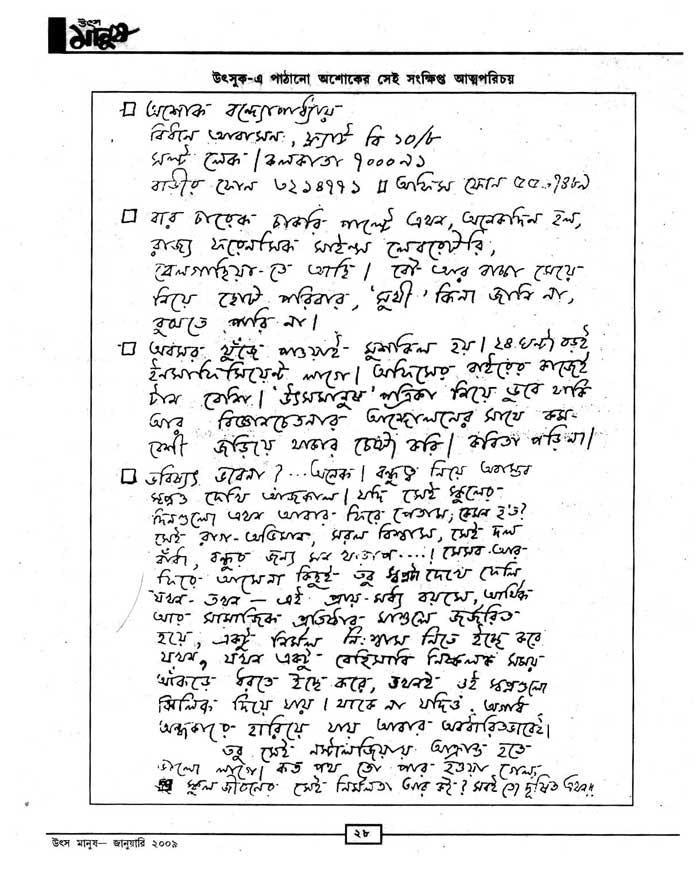 উৎস
মানুষ
উৎসুক-এ পাঠানো অশোকের সেই সংক্ষিপ্ত আত্মপরিচয়
অশোক বন্দ্যোপাধ্যায়
বিধান আবাসন, ফ্ল্যাট বি ১০/৮
সল্ট লেক | কলকাতা ৭০০০৯১
বাড়ীর ফোন ৩২১৪৭৭১ অফিস ফোন
বার চারেক চাকরি পাল্টে এখন, অনেকদিন হল,
রাজ্য ফরেনসিক সাইন্স লেবরেটরি,
বেলগাছিয়া-তে আছি | বৌ আর বাচ্চা মেয়ে
নিয়ে ছোট পরিবার, 'সুখী' কিনা জানি না,
বুঝতে পারি না |
অবসর খুঁজে পাওয়াই মুশকিল হয় | ২৪ ঘন্টা বড়ই
ইনসাফিসিয়েন্ট লাগে | অফিসের বাইরের কাজেই
টান বেশি | 'উৎসমানুষ' পত্রিকা নিয়ে ডুবে থাকি
আর বিজ্ঞানচেতনার আন্দোলনের সাথে কম-
বেশী জড়িয়ে থাকার চেষ্টা করি | কবিতা পড়ি না |
ভবিষ্যৎ ভাবনা ? ... অনেক | বন্ধুত্ব নিয়ে অবান্তর
স্বপ্নও দেখি আজকাল | যদি সেই স্কুলের
দিনগুলো এখন আবার ফিরে পেতাম, কেমন হত?
সেই রাগ-অভিমান, সরল বিশ্বাস, সেই দল
বাঁধা, বন্ধুর জন্য মন খারাপ....! সেসব আর
ফিরে আসেনা কিছুই তবু স্বপ্নটা দেখে ফেলি
যখন-তখন — এই প্রায়-মধ্য বয়সে, আর্থিক
আর সামাজিক প্রতিষ্ঠার মাশুলে জর্জরিত
হয়ে, একটু নির্মল নিঃশ্বাস নিতে ইচ্ছে করে
যখন, যখন একটু বেহিসাবি নিষ্কলঙ্ক সময়
আঁকড়ে ধরতে ইচ্ছে করে, তখনই ওই স্বপ্নগুলো
ঝিলিক দিয়ে যায় | থাকে না যদিও, অগাধ
অন্ধকারে হারিয়ে যায় আবার অবধারিতভাবেই |
তবু সেই নস্টালজিয়ায় আক্রান্ত হতে
ভালো লাগে | কত পথ তো পার হওয়া গেল,
স্কুল জীবনের সেই নির্মলতা আর কই? সবই তো দূষিত এখন!!
২৮
উৎস মানুষ— জানুয়ারি ২০০৯